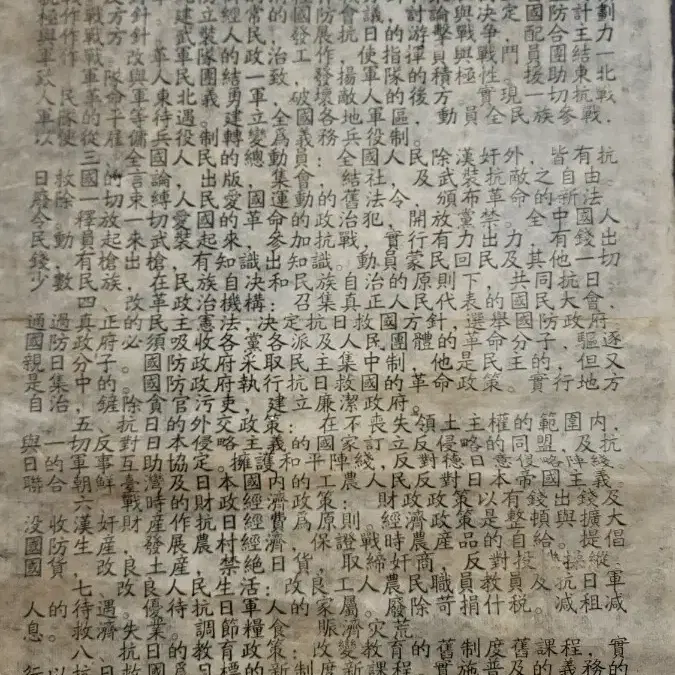 作戰方針。建立經常的國防會議，討論與決定國防計劃
與作戰方針。武裝人民，發展抗日游擊戰爭，配合主力
軍作戰。改革軍隊的政治工作，使指揮員與戰鬥員團結
一致。軍隊與人民團結一致，發揚軍隊的積極性。援助東北
人民革命軍東北義勇軍，破壞敵人的後方。實現一切抗戰
軍隊的平等待遇。建立全國各地軍區，動員全民族參戰，
以便從雇傭兵役制轉變爲義務兵役制。
三、全國人民的總動員：全國人民除漢奸外，皆有抗
日救國的言論，出版，集會，結社，及武裝抗敵之自由。
廢除一切束縛人民愛國運動的舊法令，頒布革命的新法
令。釋放一切愛國的革命的政治犯，開放黨禁。全中國人
民動員起來，武裝起來，參加抗戰，實行有力出力，有錢出
錢，有槍出槍，有知識出知識。動員蒙民回民及其他一切
少數民族，在民族自决和民族自治的原則下，共同抗日。
四、改革政治機構：召集真正人民代表的國民大會，
通過真正的民主憲法，决定抗日救國方針，選舉國防政府。
國防政府必須吸收各黨各派及人民團體的革命分子，驅逐
親日分子。國防政府采取民主集中制，他是民主的，但又
是集中的。國防政府執行抗日救國的革命政策。實行地方
自治，鏟除貪官污吏，建立廉潔政府。
五、抗日的外交政策：在不喪失領土主權的範圍内，
與一切反對日本侵略主義的國家訂立反侵略的同盟，及抗
日的軍事互助協定。擁護和平陣綫，反對德日意侵略陣綫。
聯合朝鮮臺灣及日本國内的工農人民反對日本帝國主義。
六、戰時的財政經濟政策：財政政策以有錢出錢及
没收漢奸財産作抗日經費爲原則。經濟政策是整頓與擴大
國防生産，發展農村經濟，保證戰時農産品的自給。提倡
國貨，改良土産，禁絶日貨，取締奸商，反對投機操縱。
七、改良人民生活：改良工人農民職員教員及抗日軍
人的待遇。優待抗日軍人的家屬。廢除苛捐什税。減租減
息。救濟失業。調節糧食，賑濟灾荒。
八、抗日的教育政策：改變教育的舊制度舊課程，實
行以抗日救國爲目標的新制度新課程。實施普及的義務的